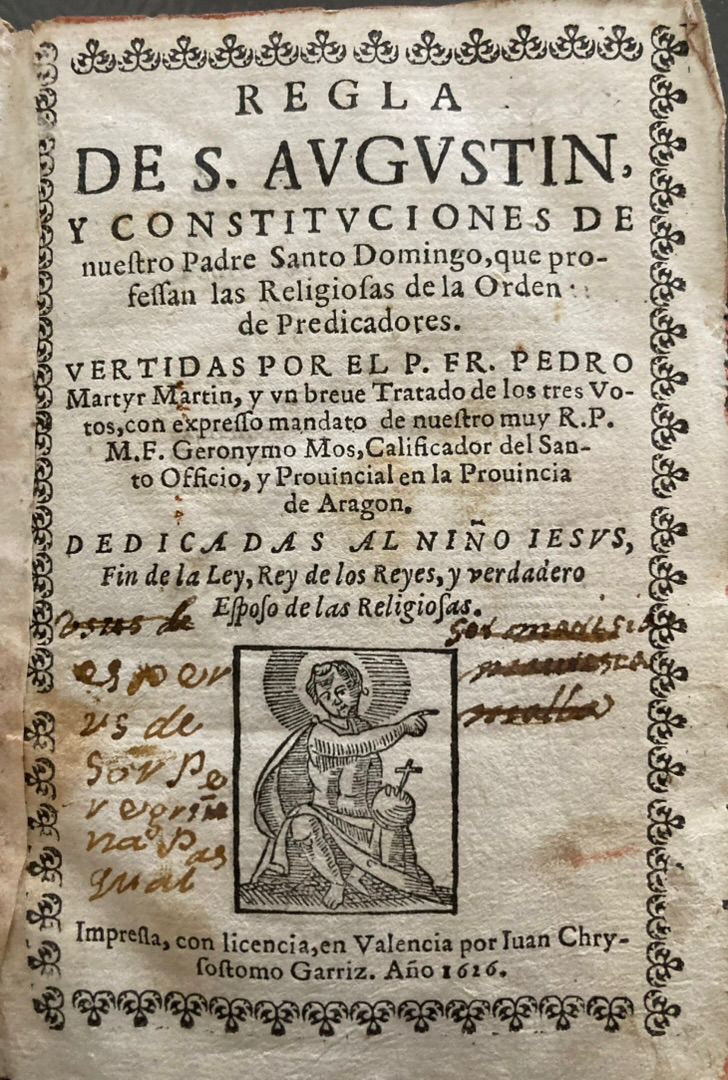 REGLA
DE S. AVGVSTIN,
Y CONSTITVCIONES DE
nueſtro Padre Santo Domingo, que pro-
feſſan las Religioſas de la Orden
de Predicadores.
VERTIDAS POR EL P. FR. PEDRO
Martyr Martin, y vn breue Tratado de los tres Vo-
tos, con expreſſo mandato de nueſtro muy R.P.
M.F. Geronymo Mos, Calificador del San-
to Officio, y Prouincial en la Prouincia
de Aragon.
DEDICADAS AL NIÑO IESVS,
Fin de la Ley, Rey de los Reyes, y verdadero
Eſpoſo de las Religioſas.
es per
us de
sor Pe
regrin
na Pas
qual
Impreſſa, con licencia, en Valencia por Iuan Chry-
ſoſtomo Garriz. Año 1626.